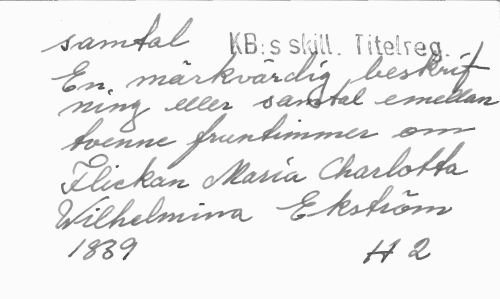 samtal KB:s skill. Titelreg.
En märkvärdig beskrif
ning eller samtal emellan
tvenne fruntimmer om
Flickan Maria Charlotta
Wilhelmina Ekström
1839 H 2